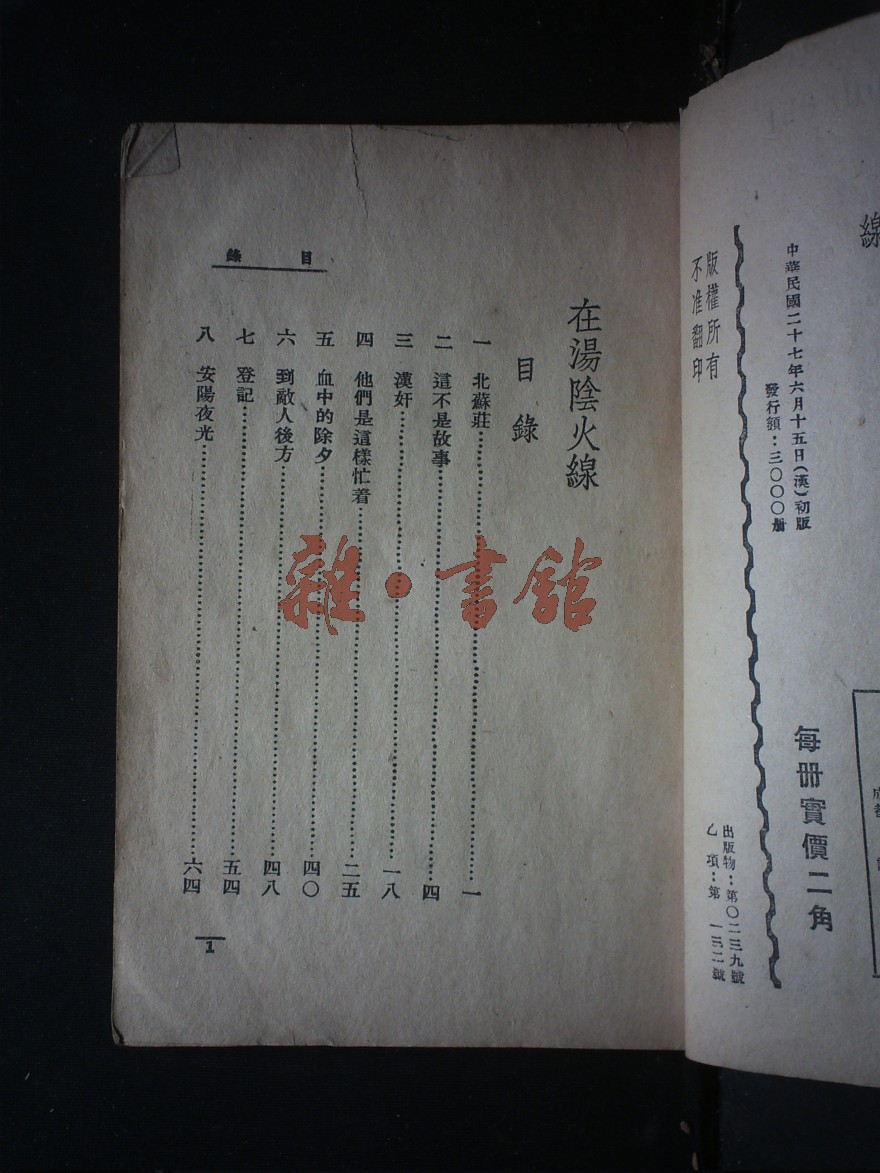 線
中華民國二十七年六月十五日(漢)初版
發行額：三〇〇〇册
版權所有
不准翻印
每册實價二角
出版物：第〇二三九號
乙項：第一三二號
目錄
在湯陰火線
目錄
一 北蘇莊 一
二 這不是故事 四
三 漢奸 一八
四 他們是這樣忙着 二五
五 血中的除夕 四〇
六 到敵人後方 四八
七 登記 五四
八 安陽夜光 六四
1
雜·書館